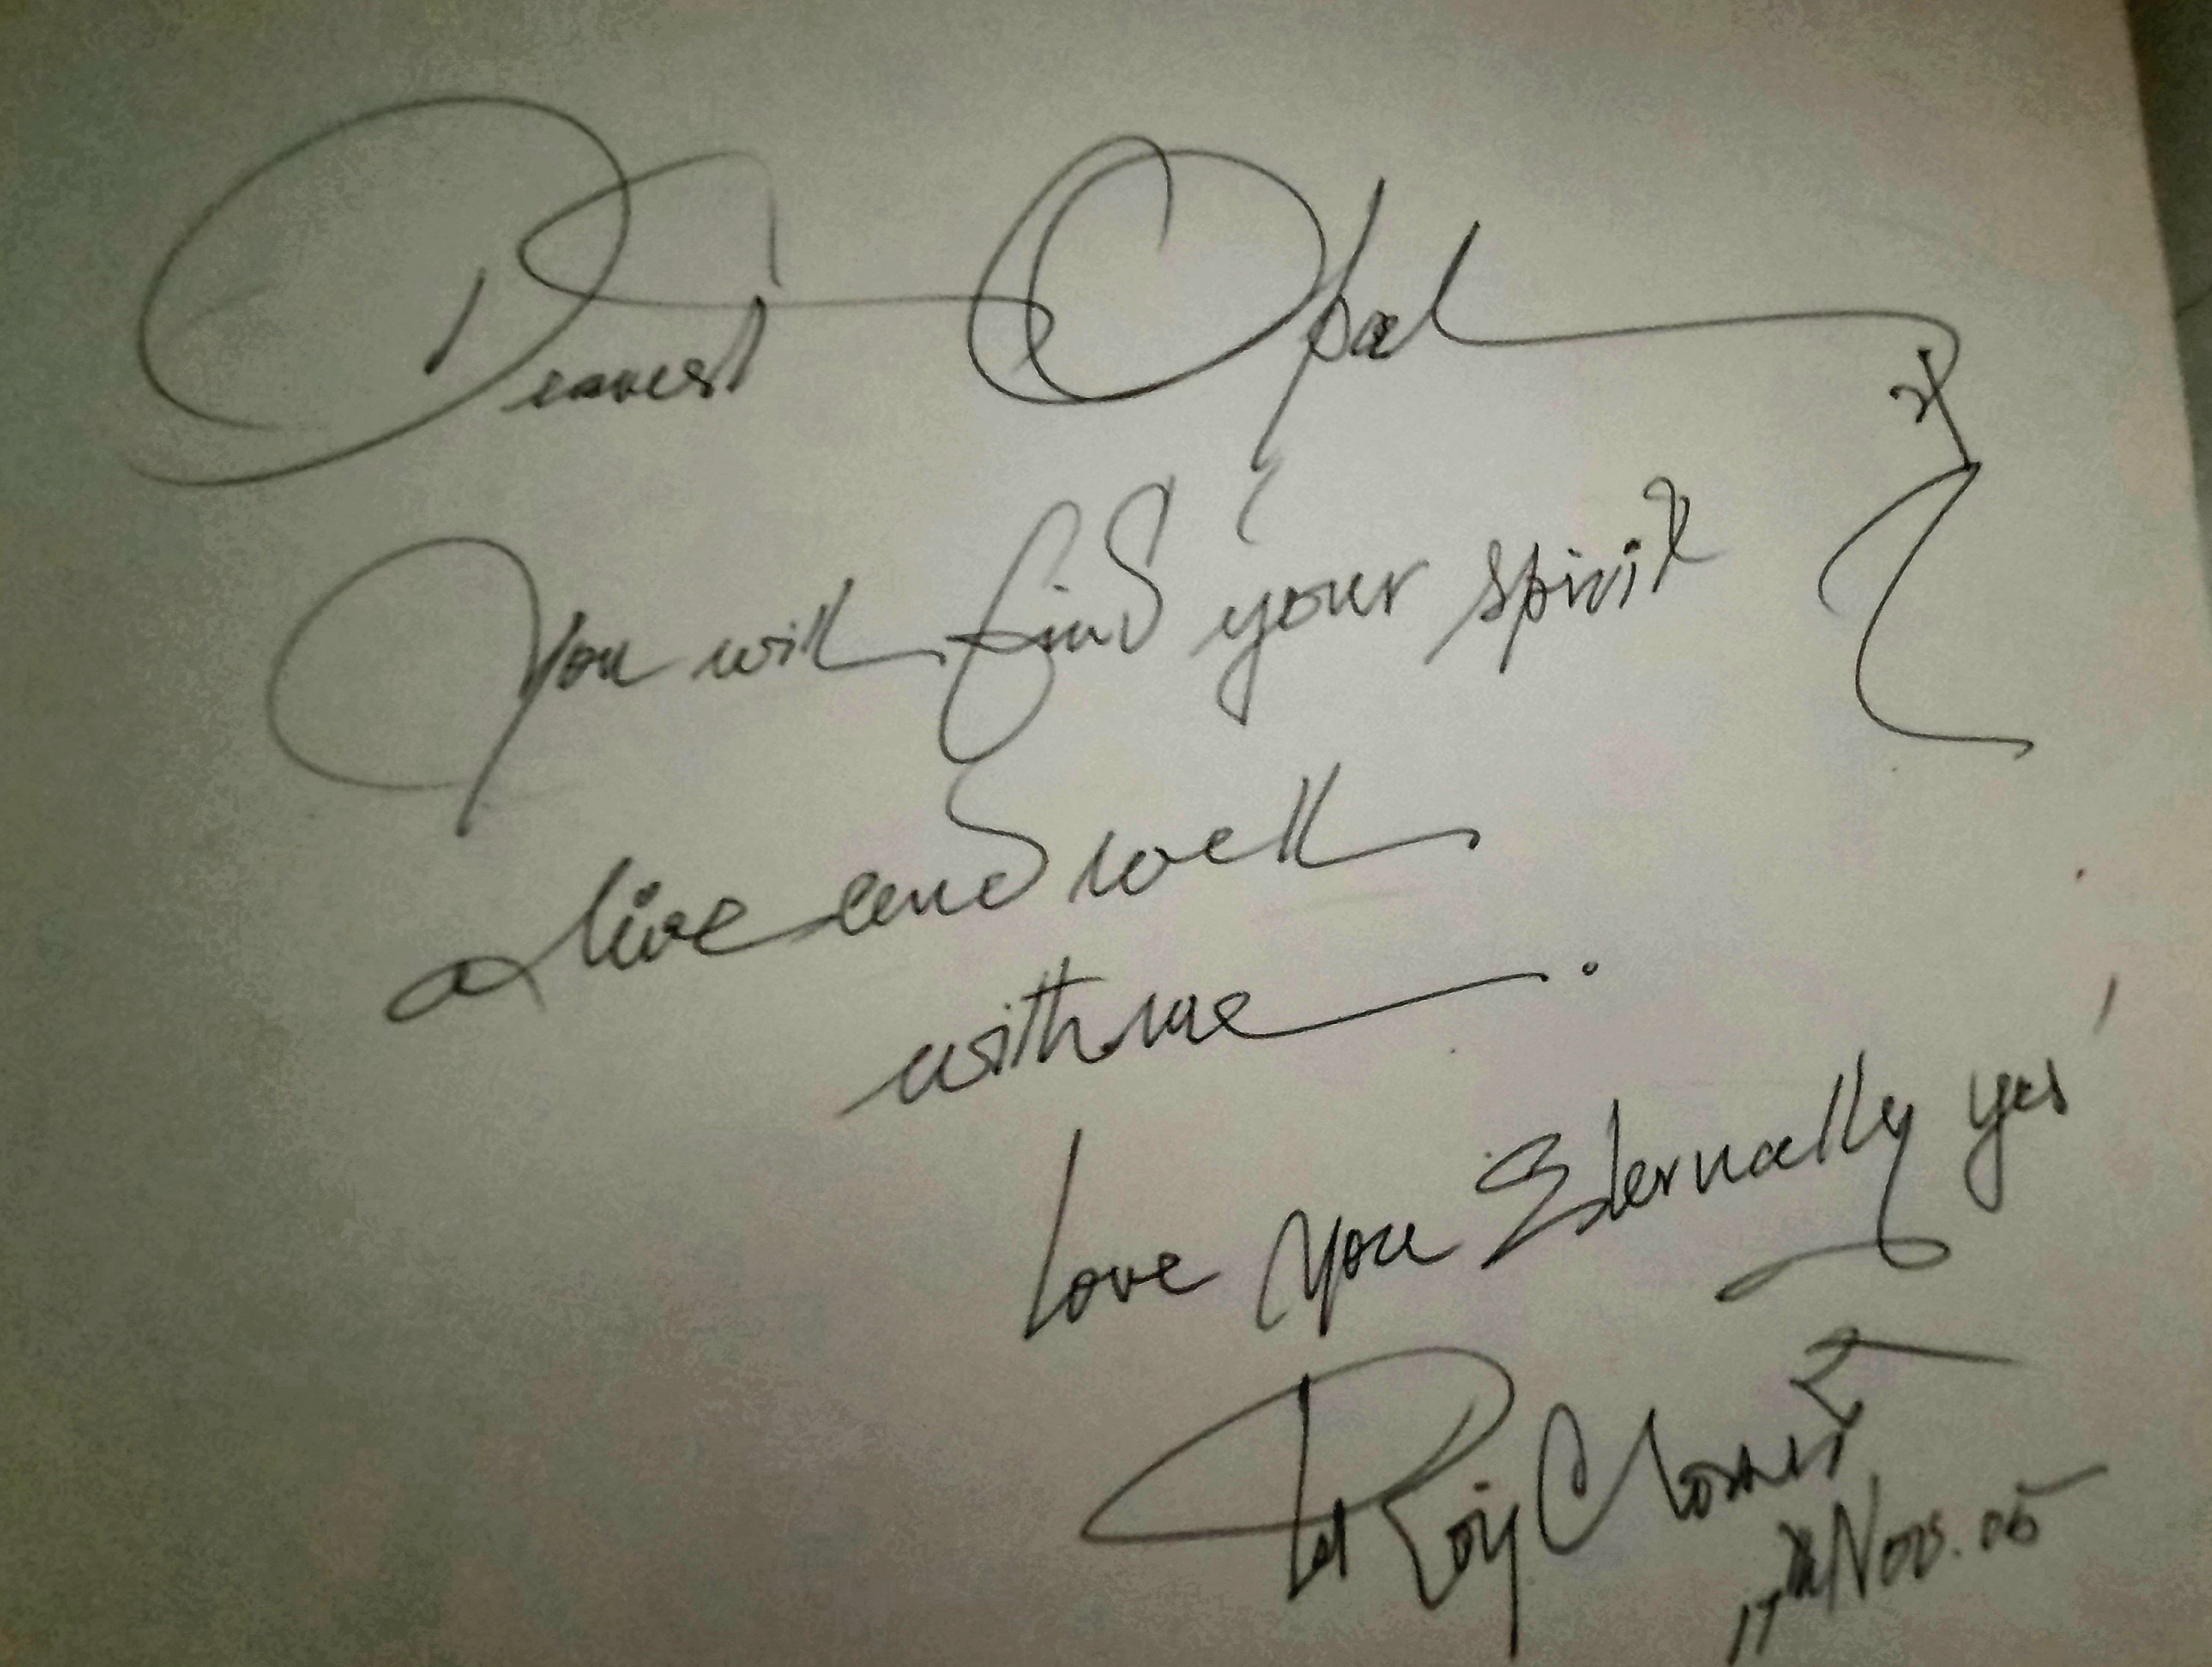 Dearest Opal
You will find your spirit
alive and well
with me.
Love you Eternally yes!
Roy
17th Nov. 05